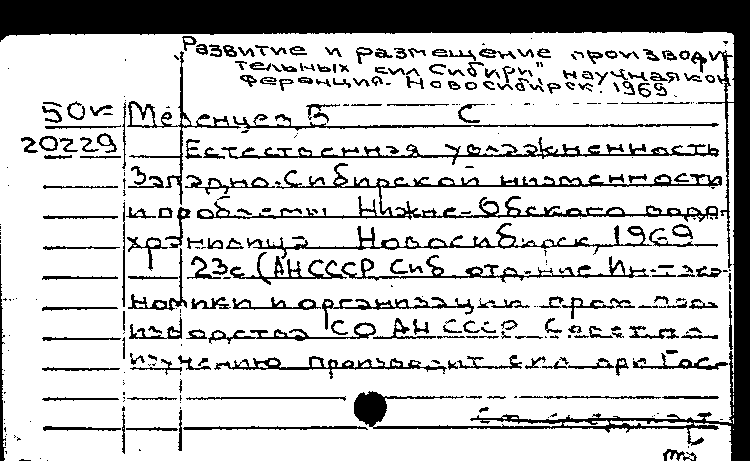 Развитие и размещение производи
тельных сил Сибири" научная кон
ференция. Новосибирск. 1969.
50к Мезенцев, В С
20229 Естественная увлажненность
Западно-Сибирской низменности
и проблемы Нижне-Обского водо-
хранилища Новосибирск, 1969
23с (АН СССР Сиб отд-ние Ин-т эко-
номики и организации пром. про-
изводства СО АН СССР Совет по
изучению производит сил при Гос-